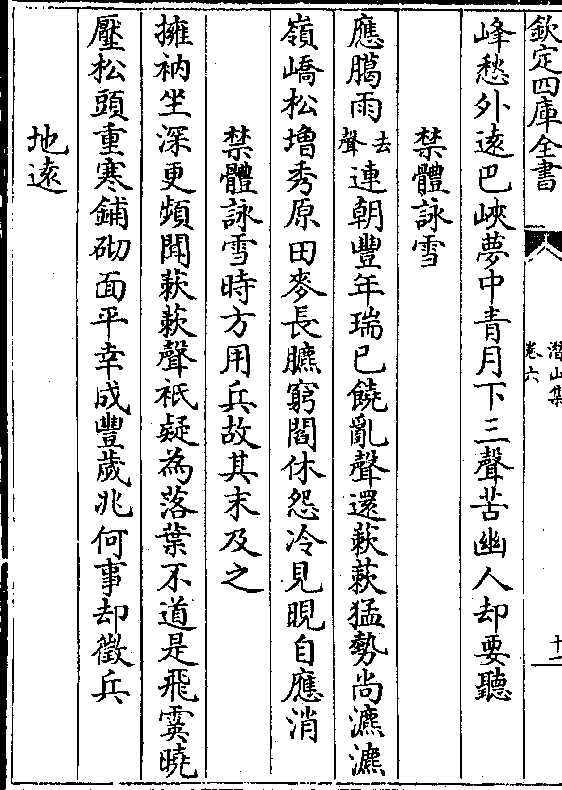 欽定四庫全書
潛山集
卷六
十一
峰愁外逺巴峽夢中青月下三聲苦幽人却要聽
禁體詠雪
應臈雨去聲連朝豐年瑞已饒亂聲還蔌蔌猛勢尚瀌瀌
嶺嶠松增秀原田麥長臕窮閻休怨冷見晛自應消
禁體詠雪時方用兵故其末及之
擁衲坐深更頻聞蔌蔌聲祇疑為落葉不道是飛霙曉
壓松頭重寒鋪砌面平幸成豐歲兆何事却徵兵
地逺